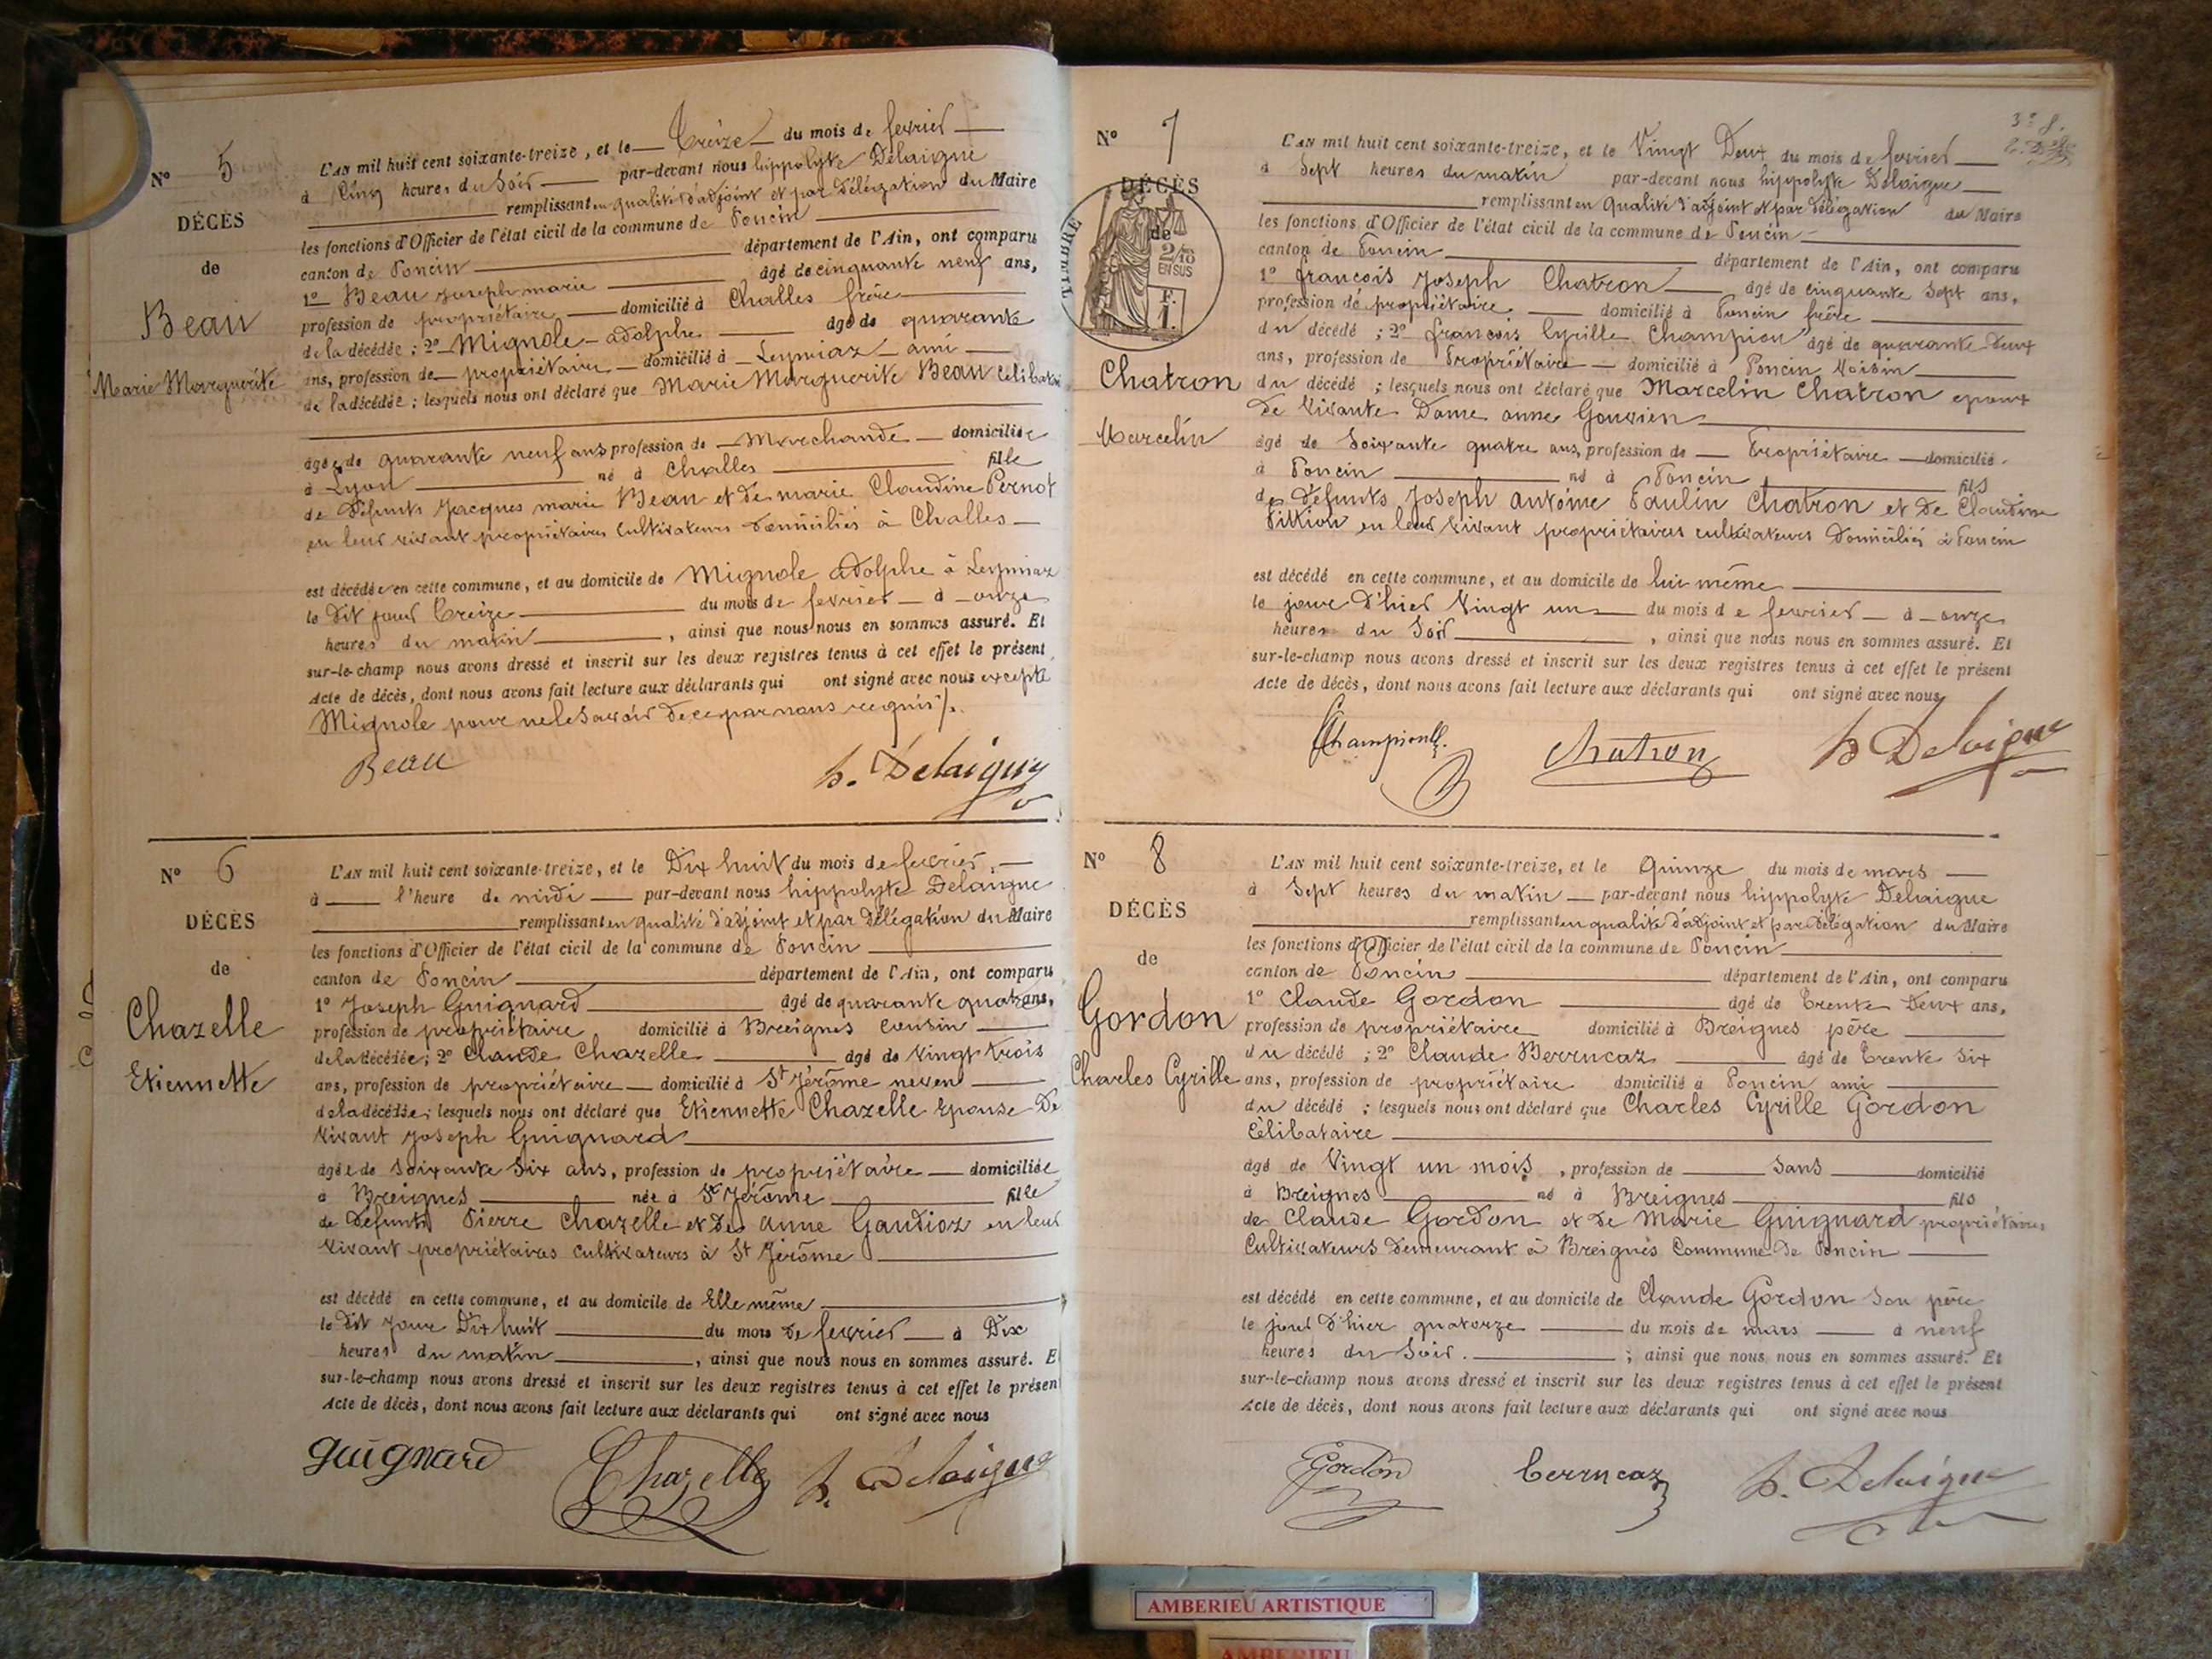 N° 5
DÉCÈS
de
Beau
Marie Marguerite
L'AN mil huit cent soixante-treize, et le Treize du mois de fevrier
à Cinq heures du Soir par-devant nous hippolyte Delaigue
remplissant en qualité d'adjoint et par Délégation du Maire
les fonctions d'Officier de l'état civil de la commune de Poncin
canton de Poncin département de l'Ain, ont comparu
1° Beau Joseph marie âgé de cinquante neuf ans,
profession de propriétaire domicilié à Challes frère
de la décédée ; 2° Mignole adolphe âgé de quarante
ans, profession de propriétaire domicilié à Leymiaz ami
de la décédée ; lesquels nous ont déclaré que Marie Marguerite Beau Celibataire
âgée de quarante neuf ans profession de Marchande domiciliée
à Lyon né à Challes fille
de Défunts Jacques marie Beau et de marie Claudine Pernot
en leur vivant propriétaires Cultivateurs domiciliés à Challes
est décédée en cette commune, et au domicile de Mignole adolphe à Leymiaz
le Dit jour Treize du mois de fevrier à onze
heures du matin , ainsi que nous nous en sommes assuré. Et
sur-le-champ nous avons dressé et inscrit sur les deux registres tenus à cet effet le présent
Acte de décès, dont nous avons fait lecture aux déclarants qui ont signé avec nous excepté
Mignole pour ne le Savoir De ce par nous requis /.
Beau h. Delaigue
N° 6
DÉCÈS
de
Chazelle
Etiennette
L'AN mil huit cent soixante-treize, et le Dix huit du mois de fevrier
à l'heure de midi par-devant nous hippolyte Delaigue
remplissant en qualité d'adjoint et par Délégation du Maire
les fonctions d'Officier de l'état civil de la commune de Poncin
canton de Poncin département de l'Ain, ont comparu
1° Joseph Guignard âgé de quarante quatre ans,
profession de propriétaire domicilié à Breignes Cousin
de la décédée ; 2° Claude Chazelle âgé de Vingt trois
ans, profession de propriétaire domicilié à St Jérôme neveu
de la décédée ; lesquels nous ont déclaré que Etiennette Chazelle Epouse De
Vivant Joseph Guignard
âgée de Soixante Six ans, profession de propriétaire domiciliée
à Breignes née à St Jérôme fille
de Defunts Pierre Chazelle et De anne Gaudioz en leur
Vivant propriétaires Cultivateurs à St Jérôme
est décédé en cette commune, et au domicile de Elle même
le Dit Jour Dix huit du mois de fevrier à Dix
heures du matin , ainsi que nous nous en sommes assuré. E
sur-le-champ nous avons dressé et inscrit sur les deux registres tenus à cet effet le présen
Acte de décès, dont nous avons fait lecture aux déclarants qui ont signé avec nous
guignard Chazelle h. Delaigue
N° 7
DÉCÈS
de
TIMBRE
2/10
EN SUS
F.
1.
Chatron
Marcelin
L'AN mil huit cent soixante-treize, et le Vingt Deux du mois de fevrier
à Sept heures du matin par-devant nous hippolyte Delaigue
remplissant en Qualité d'adjoint et par Délégation du Maire
les fonctions d'Officier de l'état civil de la commune de Poncin
canton de Poncin département de l'Ain, ont comparu
1° francois Joseph Chatron âgé de cinquante Sept ans,
profession de propriétaire domicilié à Poncin frère
du décédé ; 2° francois Cyrille Champion âgé de quarante Deux
ans, profession de Propriétaire domicilié à Poncin Voisin
du décédé ; lesquels nous ont déclaré que Marcelin Chatron epoux
De Vivante Dame anne Gouvien
âgé de Soixante quatre ans, profession de Propriétaire domicilié
à Poncin né à Poncin fils
des Défunts Joseph Antoine Paulin Chatron et De Claudine
Pittion en leur Vivant propriétaires cultivateurs Domiciliés à Poncin
est décédé en cette commune, et au domicile de lui même
le jour D'hier Vingt un du mois de fevrier à onze
heures du Soir , ainsi que nous nous en sommes assuré. Et
sur-le-champ nous avons dressé et inscrit sur les deux registres tenus à cet effet le présent
Acte de décès, dont nous avons fait lecture aux déclarants qui ont signé avec nous
Champion Chatron h Delaigue
N° 8
DÉCÈS
de
Gordon
Charles Cyrille
L'AN mil huit cent soixante-treize, et le Quinze du mois de mars
à Sept heures du matin par-devant nous hippolyte Delaigue
remplissant en qualité d'adjoint et par Délégation du Maire
les fonctions d'Officier de l'état civil de la commune de Poncin
canton de Poncin département de l'Ain, ont comparu
1° Claude Gordon âgé de Trente Deux ans,
profession de propriétaire domicilié à Breignes père
du décédé ; 2° Claude Berrucaz âgé de Trente Six
ans, profession de propriétaire domicilié à Poncin ami
du décédé ; lesquels nous ont déclaré que Charles Cyrille Gordon
Célibataire
âgé de Vingt un mois , profession de Sans domicilié
à Breignes né à Breignes fils
de Claude Gordon et de Marie Guignard propriétaires
Cultivateurs Demeurant à Breignes Commune De Poncin
est décédé en cette commune, et au domicile de Claude Gordon Son père
le jour D'hier quatorze du mois de mars à neuf
heures du Soir. ; ainsi que nous nous en sommes assuré. Et
sur-le-champ nous avons dressé et inscrit sur les deux registres tenus à cet effet le présent
Acte de décès, dont nous avons fait lecture aux déclarants qui ont signé avec nous
Gordon berrucaz h. Delaigue
AMBERIEU ARTISTIQUE
AMBERIEU